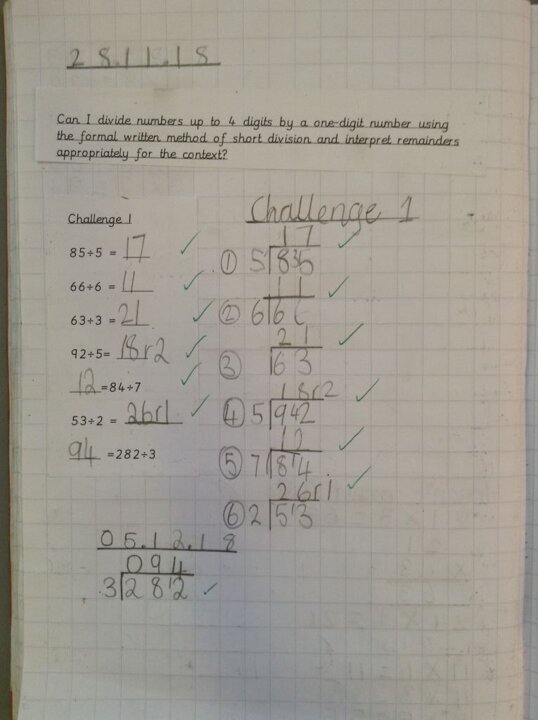 28.11.18
Can I divide numbers up to 4 digits by a one-digit number using
the formal written method of short division and interpret remainders
appropriately for the context?
Challenge 1
85÷5 = 17
66÷6 = 11
63÷3 = 21
92÷5= 18r2
12 =84÷7
53÷2 = 26r1
94 =282÷3
Challenge 1
17
① 5 8 35
11
② 6 6 6
21
③ 63
18r2
④ 5 9 42
12
⑤ 7 8 14
26r1
⑥ 2 5 13
05.12.18
094
3 2 8 12